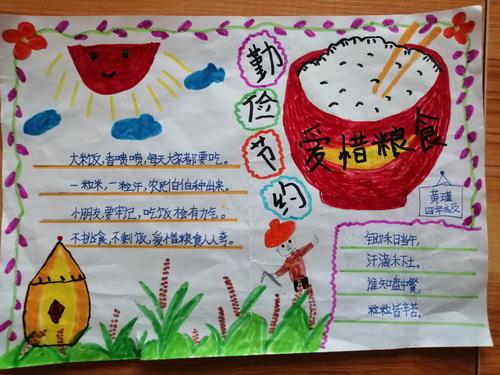 勤
俭
节
约
爱惜粮食
大米饭，香喷喷，每天大家都要吃。
一粒米，一粒汗，农民伯伯种出来。
小朋友，要牢记，吃饭有力气。
不挑食，不剩饭，爱惜粮食人人夸。
黄瑾
四年级
锄禾日当午，
汗滴禾下土。
谁知盘中餐，
粒粒皆辛苦。